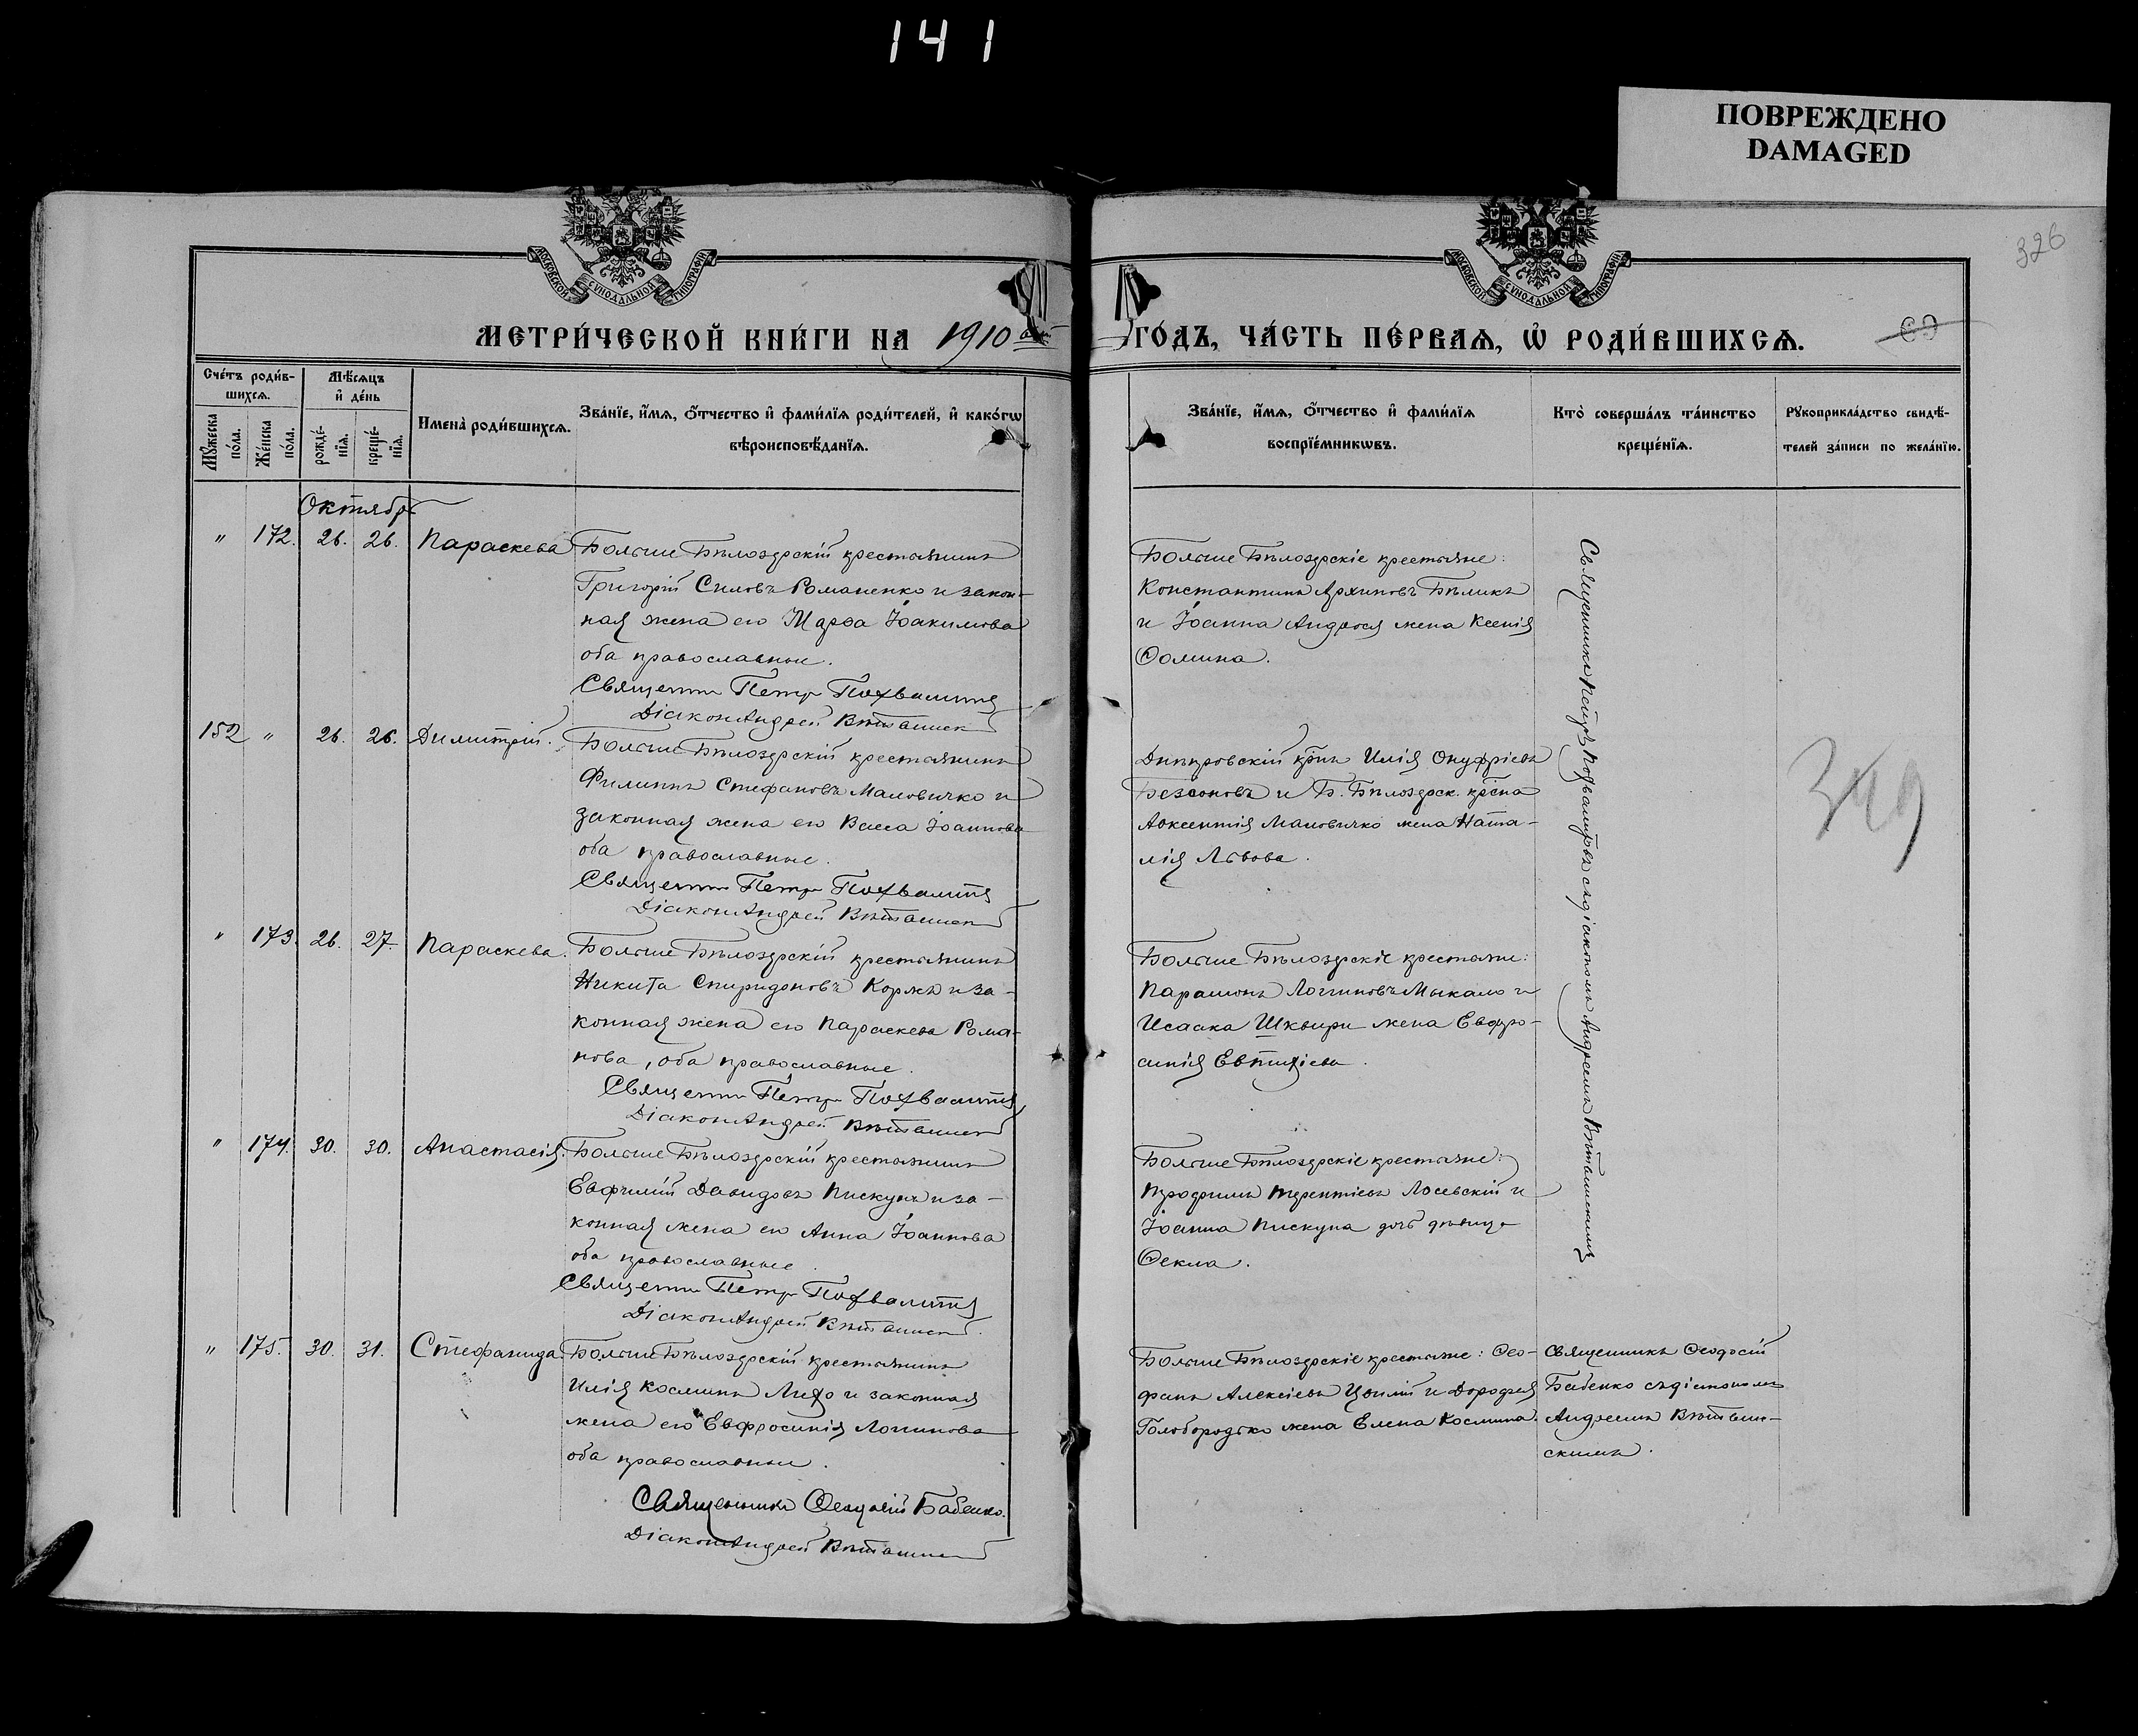 141
ПОВРЕЖДЕНО
DAMAGED
326
МОСКОВСКОЙ СУНОДАЛЬНОЙ ТИПОГРАФІИ
МОСКОВСКОЙ СУНОДАЛЬНОЙ ТИПОГРАФІИ
МЕТРИ́ЧЕСКОЙ КНИ́ГИ НА 1910
ГО́ДЪ, ЧА́СТЬ ПЕ́РВАѦ, Ѡ РОДИ́ВШИХСѦ.
69
Сче́тъ роди́в-
шихсѧ.
Мꙋ́жеска
по́ла.
Же́нска
по́ла.
Мѣ́сѧцъ
и҆ де́нь
рожде́-
нїѧ.
креще́-
нїѧ.
И҆мена̀ роди́вшихсѧ.
Зва́нїе, и҆́мѧ, ѻ҆́тчество и҆ фами́лїѧ роди́телей, и҆ како́гѡ
вѣроисповѣ́данїѧ.
Зва́нїе, и҆́мѧ, ѻ҆́тчество и҆ фами́лїѧ
воспрїе́мникѡвъ.
Кто̀ соверша́лъ та́инство
креще́нїѧ.
Рꙋкоприкла́дство свидѣ́-
телей за́писи по жела́нїю.
Октябрь
" 172. 26. 26. Параскева
Больше Бѣлозерскій крестьянинъ
Григорій Силовъ Романенко и закон-
ная жена его Марѳа Іоакимова
оба православные.
Священникъ Петръ Похвалитъ
Діаконъ Андрей
Больше Бѣлозерскіе крестьяне:
Константинъ Архиповъ Бѣликъ
и Іоанна жена Ксенія
Ѳомина.
Священникъ Петръ съ діакономъ Андреемъ
152 " 26. 26. Димитрій.
Больше Бѣлозерскій крестьянинъ
Филиппъ Стефановъ Маловичко и
законная жена его Васса Іоаннова
оба православные.
Священникъ Петръ Похвалитъ
Діаконъ Андрей
Днѣпровскій Илія Онуфріевъ
Безсоновъ и Б. Бѣлозерск.
Авксентія Маловичко жена Ната-
лія Львова.
349
" 173. 26. 27. Параскева.
Больше Бѣлозерскій крестьянинъ
Никита Спиридоновъ Коржъ и за-
конная жена его Параскева Рома-
нова, оба православные.
Священникъ Петръ Похвалитъ
Діаконъ Андрей
Больше Бѣлозерскіе крестьяне:
Парамонъ Логгиновъ Мыкало и
Исаака Шквыри жена Евфро-
синія Евтихіева.
" 174. 30. 30. Анастасія.
Больше Бѣлозерскій крестьянинъ
Евфимій Давидовъ Пискунъ и за-
конная жена его Анна Іоаннова
оба православные.
Священникъ Петръ Похвалитъ
Діаконъ Андрей
Больше Бѣлозерскіе крестьяне:
Терентіевъ Лосевскій и
Іоанна Пискуна дочь дѣвица
Ѳекла.
" 175. 30. 31. Стефанида.
Больше Бѣлозерскій крестьянинъ
Илія Косминъ Лихо и законная
жена его Евфросинія Логгинова
оба православные.
Священникъ Ѳеодосій Бабенко.
Діаконъ Андрей
Больше Бѣлозерскіе крестьяне: Ѳео-
фанъ Алексіевъ Цвилій и Дороѳея
Голобородько жена Елена Космина.
Священникъ Ѳеодосій
Бабенко съ діакономъ
Андреемъ
скимъ.